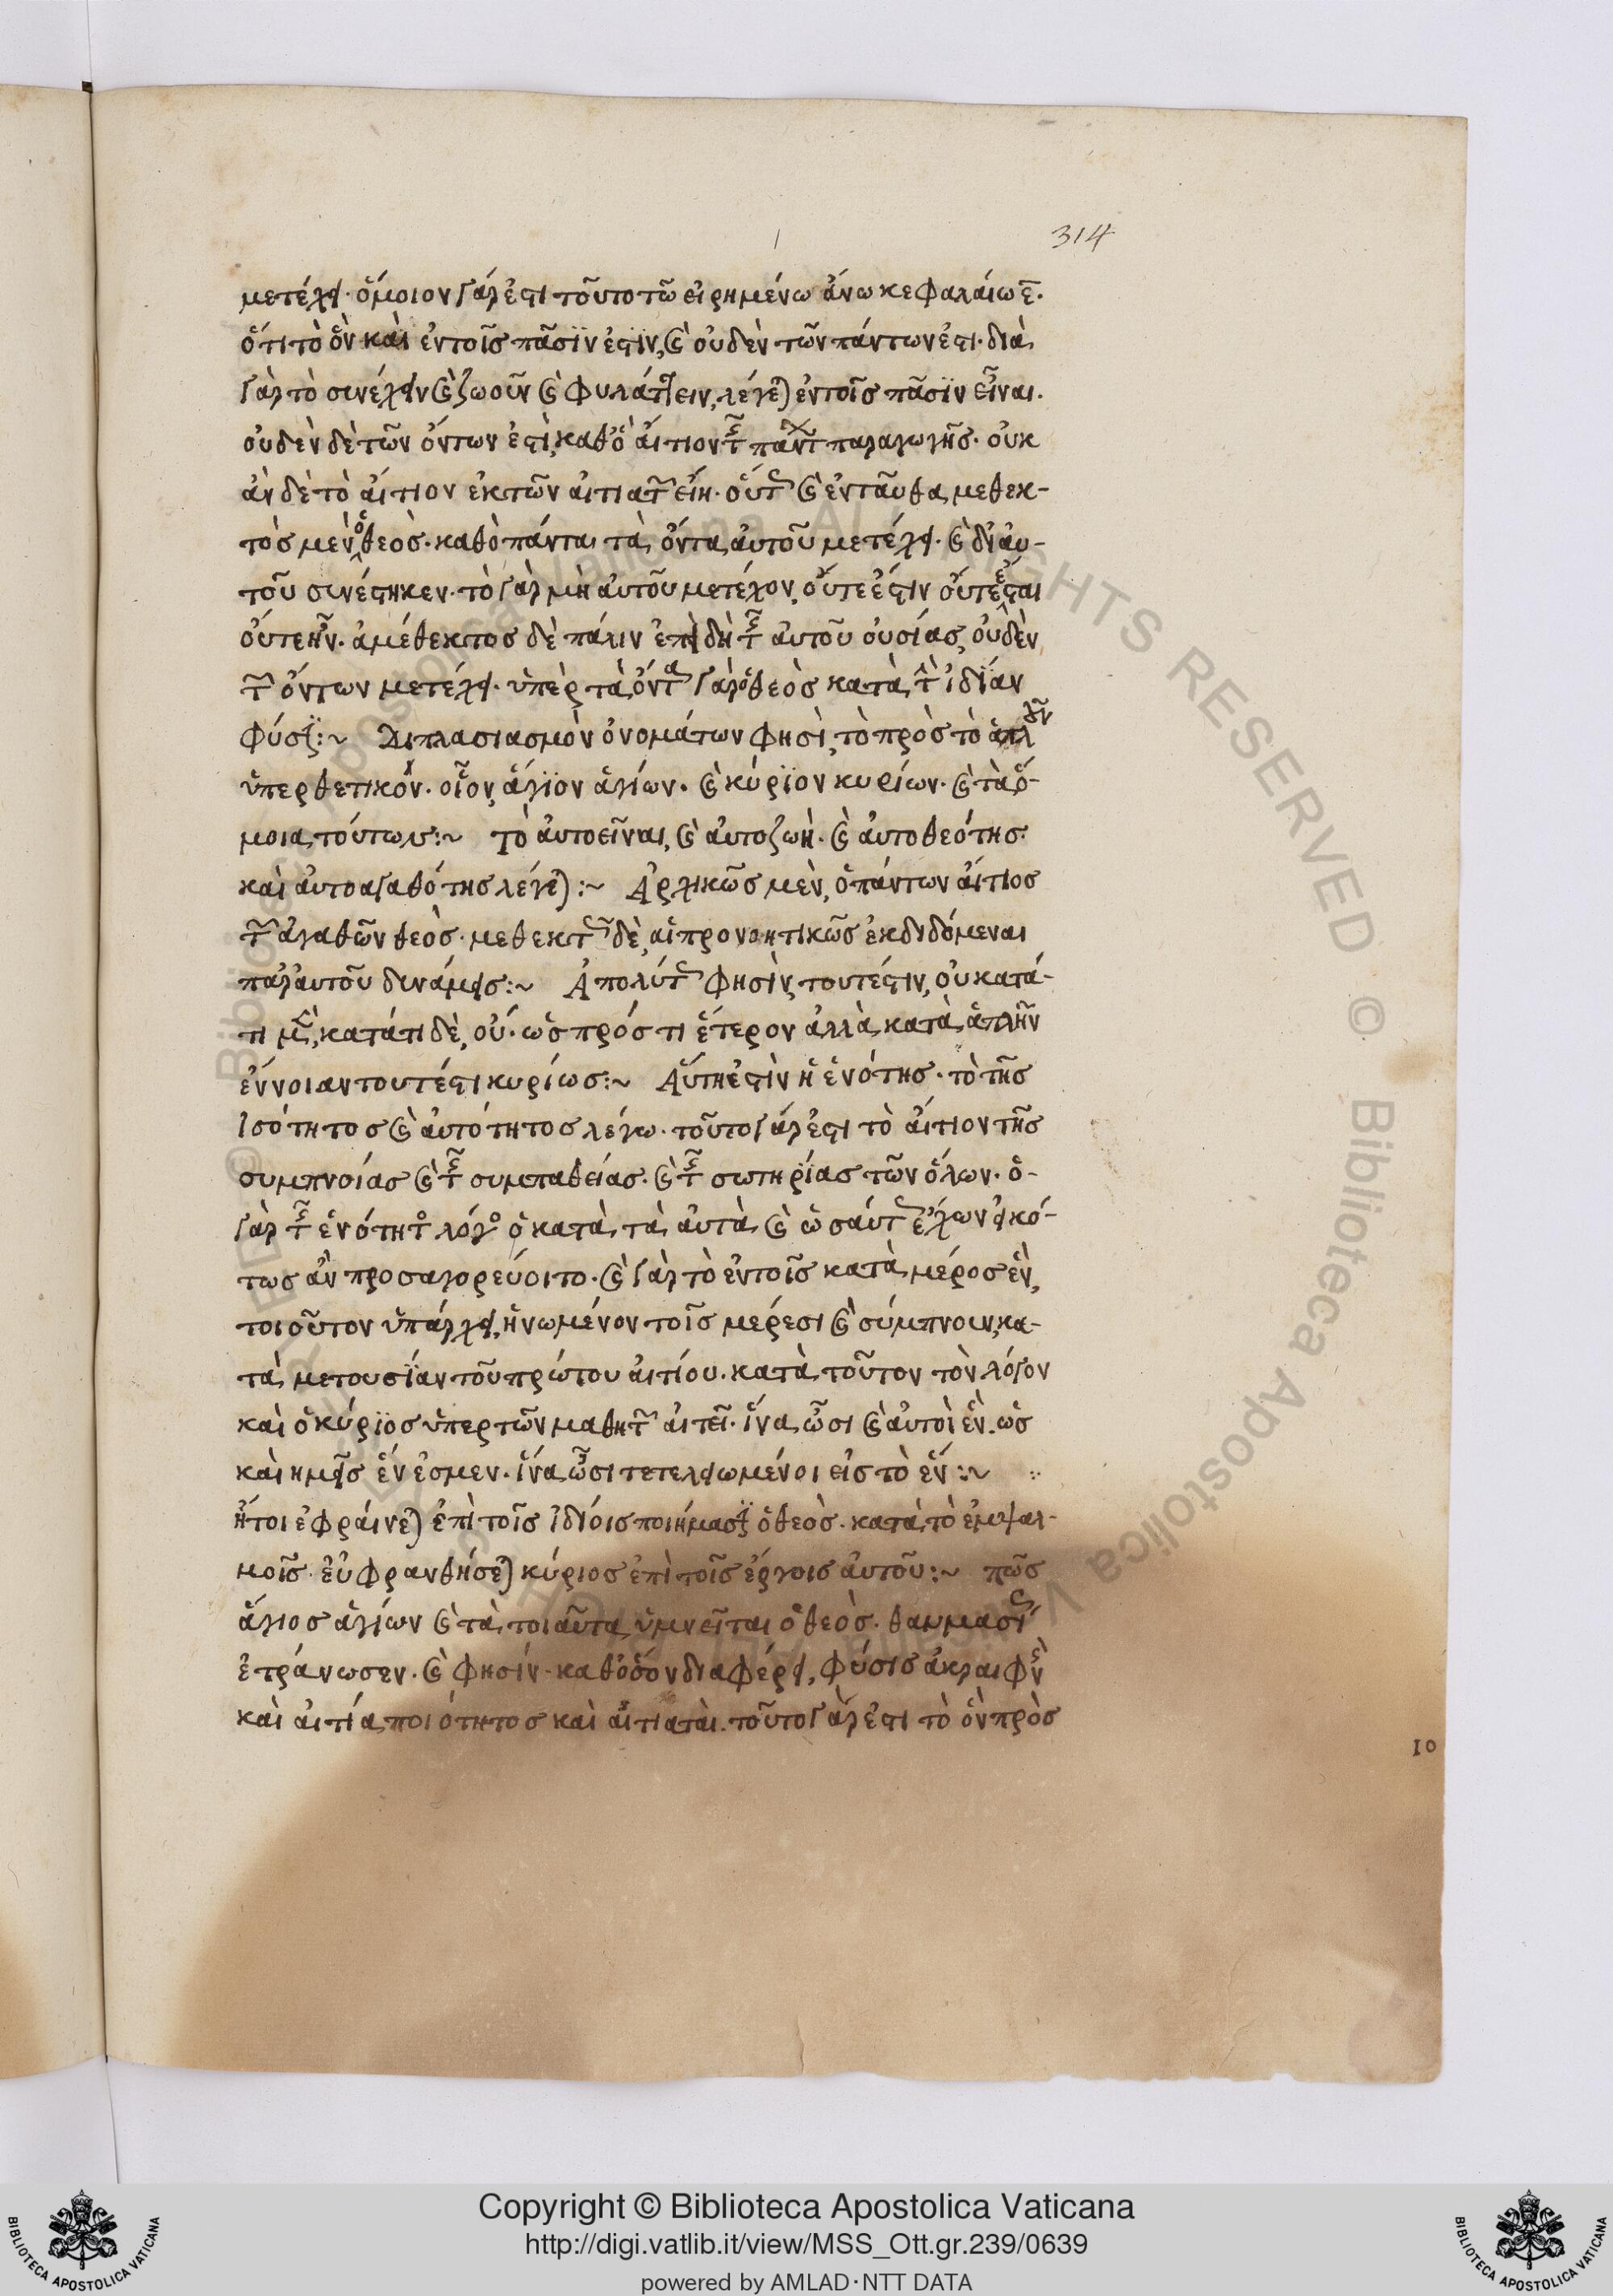 314
μετέχει· ὅμοιον γάρ ἐστι τοῦτο τῶ εἰρημένω ἄνω κεφαλαίω ε̅.
ὅτι τὸ ὂν καὶ ἐν τοῖς πᾶσϊν ἐστϊν, καὶ οὐδὲν τῶν πάντων ἐστι· διὰ
γὰρ τὸ συνέχειν καὶ ζωοῦν καὶ φυλάττειν, λέγεται ἐν τοῖς πᾶσϊν εἶναι.
οὐδὲν δὲ τῶν ὄντων ἐστὶ, καθ' ὃ αἴτιον τῆς πάντων παραγωγῆς· οὐκ
ἂν δὲ τὸ αἴτιον ἐκ τῶν αἰτιατῶν εἴη· οὕτως καὶ ἐνταῦθα, μεθεκ-
τὸς μὲν ὁ θεὸς· καθὸ πάντα τὰ ὄντα αὐτοῦ μετέχει· καὶ δι' αὐ-
τοῦ συνέστηκεν· τὸ γὰρ μὴ αὐτοῦ μετέχον, οὔτε ἔστιν οὔτε ἔσται
οὔτε ἦν· ἀμέθεκτος δὲ πάλιν ἐπειδὴ τῆς αὐτοῦ οὐσίας, οὐδὲν
τῶν ὄντων μετέχει· ὑπὲρ τὰ ὄντα γὰρ ὁ θεὸς κατὰ τὴν ἰδϊαν
φύσϊν:~ Διπλασιασμὸν ὀνομάτων φησὶ, τὸ πρὸς τὸ ἁπλοῦν
ὑπερθετικόν· οἷον, ἅγϊον ἁγίων· καὶ κύρϊον κυρίων· καὶ τὰ ὅ-
μοια τούτων:~ Τὸ αὐτοεῖναι, καὶ αὐτοζωὴ· καὶ αὐτοθεότης·
καὶ αὐτοαγαθότης λέγεται:~ Ἀρχικῶς μὲν, ὁ πάντων αἴτιος
τῶν ἀγαθῶν θεὸς· μεθεκτῶς δὲ, αἱ προνοητικῶς ἐκδιδόμεναι
παρ' αὐτοῦ δυνάμεις:~ Ἀπολύτως φησὶν, τουτέστιν, οὐ κατά-
τι μὲν, κατάτι δὲ, οὔ· ὡς πρός τι ἕτερον ἀλλὰ κατὰ ἁπλῆν
ἔννοιαν τουτέστι κυρίως:~ Αὕτη ἐστὶν ἡ ἑνότης· τὸ τῆς
ἰσότητος καὶ αὐτότητος λέγω· τοῦτο γάρ ἐστι τὸ αἴτιον τῆς
συμπνοίας καὶ τῆς συμπαθείας· καὶ τῆς σωτηρϊας τῶν ὅλων· ὁ-
γὰρ τῆς ἑνότητος λόγος ὁ κατὰ τὰ αὐτὰ καὶ ὡσαύτως ἔχων εἰκό-
τως ἂν προσαγορεύοιτο· καὶ γὰρ τὸ ἐν τοῖς κατὰ μέρος ἓν,
τοιοῦτον ὑπάρχει, ἡνωμένον τοῖς μέρεσι καὶ σύμπνουν, κα-
τὰ μετουσϊαν τοῦ πρώτου αἰτίου· κατὰ τοῦτον τὸν λόγον
καὶ ὁ κύρϊος ὑπερ τῶν μαθητῶν αἰτεῖ· ἵνα ὦσι καὶ αὐτοὶ ἓν. ὡς
καὶ ημεῖς ἕν ἐσμεν· ἵνα ὦσι τετελειωμένοι εἰς τὸ ἕν:~
ἤτοι ἐφραίνεται ἐπὶ τοῖς ἰδίοις ποιήμασϊν ὁ θεὸς· κατὰ τὸ ἐμ ψαλ-
μοῖς· εὐφρανθήσεται κύριος ἐπὶ τοῖς ἔργοις αὐτοῦ:~ πῶς
ἅγιος ἁγίων καὶ τὰ τοιαῦτα ὑμνεῖται ὁ θεὸς· θαυμασίως
ἐτράνωσεν· καὶ φησίν· καθ' ὅσον διαφέρει, φύσις ἀκραιφνὲς
καὶ αἰτία ποιότητος καὶ αἰτιαταὶ· τοῦτο γὰρ ἐστι τὸ ὂν πρὸς
10
Copyright © Biblioteca Apostolica Vaticana
http://digi.vatlib.it/view/MSS_Ott.gr.239/0639
powered by AMLAD·NTT DATA
BIBLIOTECA APOSTOLICA VATICANA
BIBLIOTECA APOSTOLICA VATICANA